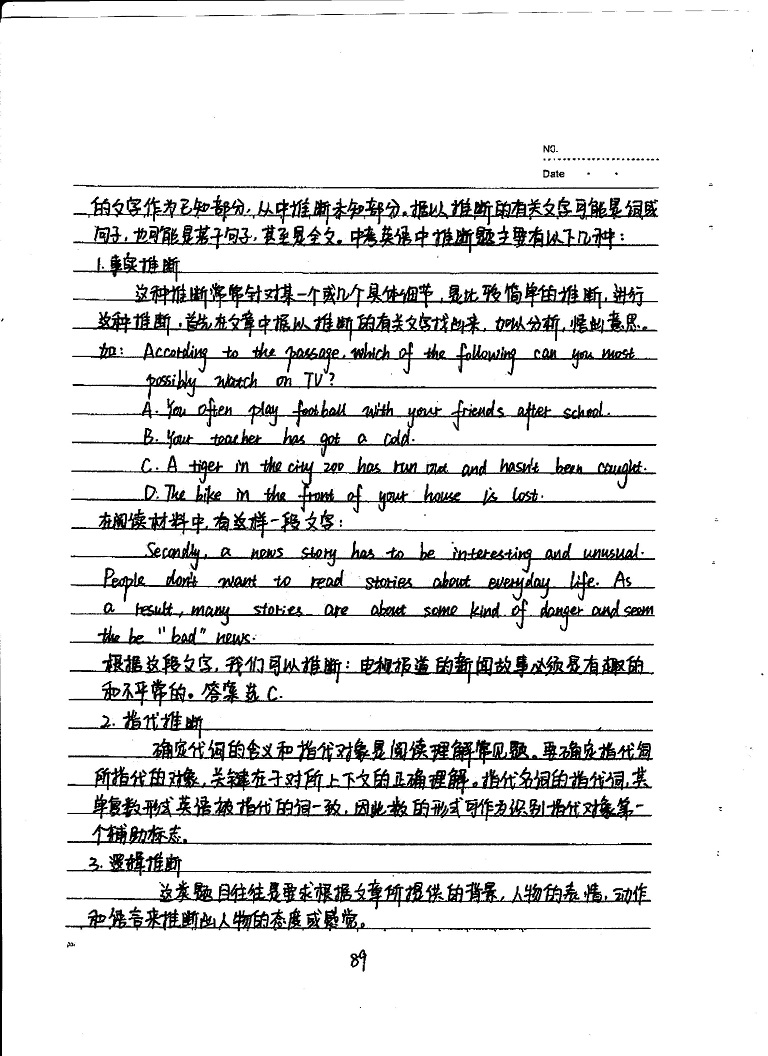 NO.
Date
的文字作为已知部分，从中推断未知部分。据以推断的有关文字可能是词或
句子，也可能是若干句子，甚至是全文。中考英语中推断题主要有以下几种：
1.事实推断
这种推断常常针对某一个或几个具体细节，是比较简单的推断，进行
这种推断，首先在文章中据以推断的有关文字找出来，加以分析，悟出意思。
如：According to the passage, which of the following can you most
possibly watch on TV?
A. You often play football with your friends after school.
B. Your teacher has got a cold.
C. A tiger in the city zoo has run out and hasn't been caught.
D. The bike in the front of your house is lost.
在阅读材料中，有这样一段文字：
Secondly, a news story has to be interesting and unusual.
People don't want to read stories about everyday life. As
a result, many stories are about some kind of danger and seem
the be "bad" news.
根据这段文字，我们可以推断：电视报道的新闻故事必须是有趣的
和不平常的。答案选C.
2.指代推断
确定代词的含义和指代对象是阅读理解常见题。要确定指代词
所指代的对象，关键在于对所上下文的正确理解。指代名词的指代词，其
单复数形式英语被指代的词一致，因此数的形式可作为识别指代对象第一
个辅助标志。
3.逻辑推断
这类题目往往是要求根据文章所提供的背景，人物的表情，动作
和语言来推断出人物的态度或感觉。
89